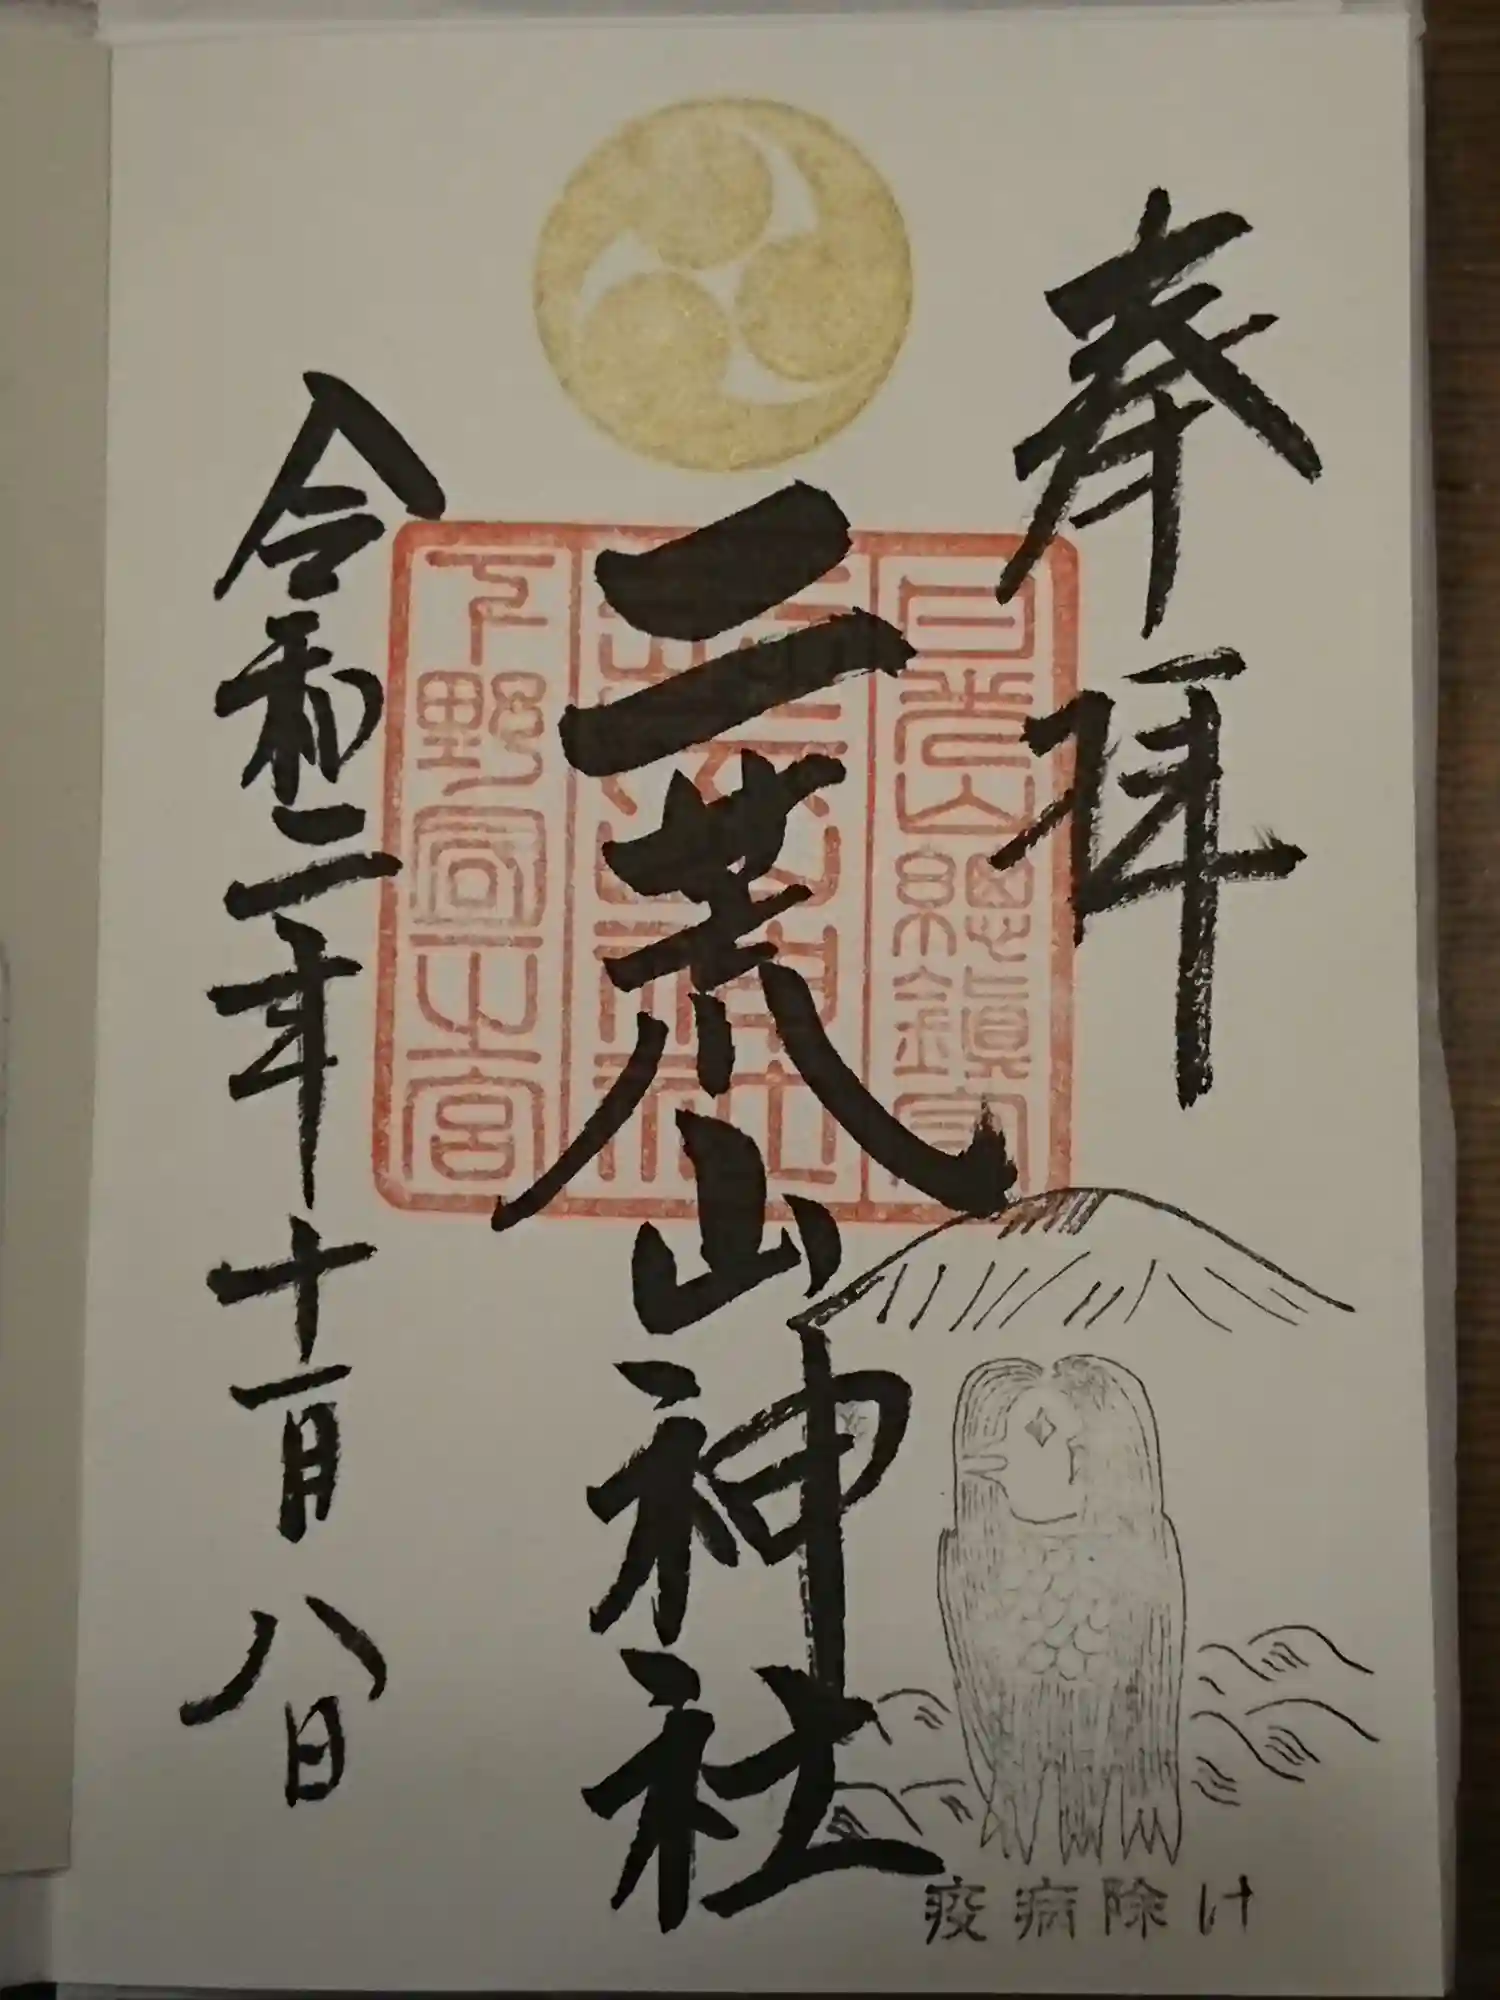 奉拝
日光山総鎮守
二荒山神社
下野国一之宮
令和二年十一月八日
疫病除け